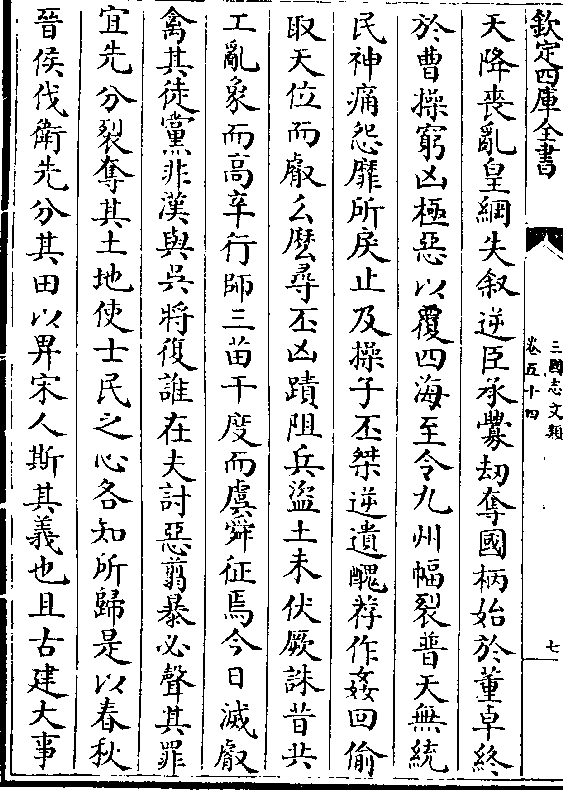 欽定四庫全書
三國志文類
卷五十四
七
天降喪亂皇綱失叙逆臣承釁刼奪國柄始於董卓終
於曹操窮凶極惡以覆四海至令九州幅裂普天無統
民神痛怨靡所戾止及操子丕桀逆遺醜荐作姦回偷
取天位而叡么麽尋丕凶蹟阻兵盜土未伏厥誅昔共
工亂象而高辛行師三苗干度而虞舜征焉今日滅叡
禽其徒黨非漢與吳將復誰在夫討惡翦暴必聲其罪
宜先分裂奪其土地使士民之心各知所歸是以春秋
晉侯伐衛先分其田以畀宋人斯其義也且古建大事